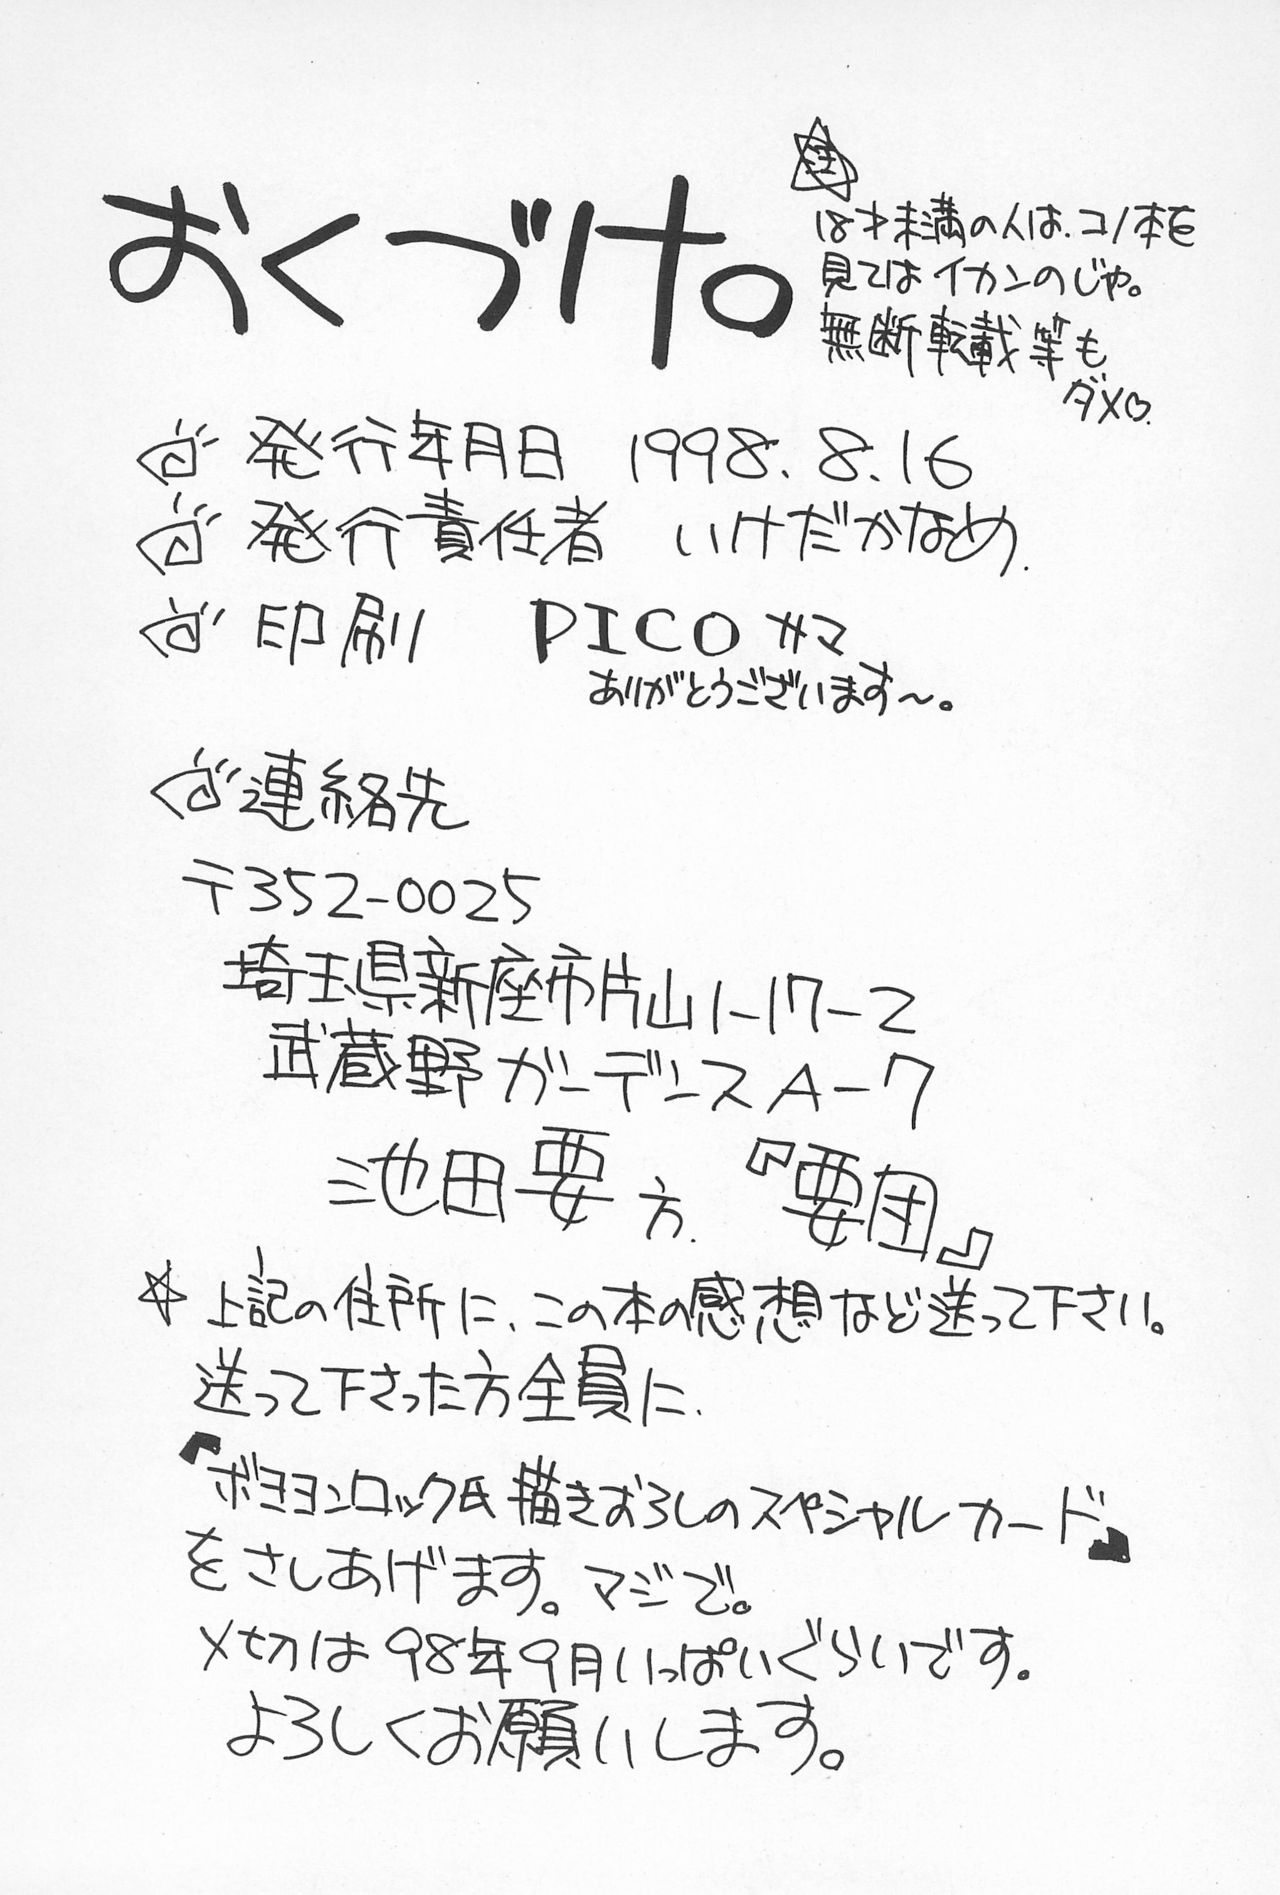 おくづけ。
注
18才未満の人は、コノ本を
見てはイカンのじゃ。
無断転載等も
ダメ♡.
発行年月日 1998.8.16
発行責任者 いけだかなめ.
印刷 PICOサマ
ありがとうございます〜。
連絡先
〒352-0025
埼玉県新座市片山1-17-2
武蔵野ガーデンスA-7
池田要方.『要団』
☆上記の住所に、この本の感想など送って下さい。
送って下さった方全員に、
『ボヨヨンロック氏描きおろしのスペシャルカード』
をさしあげます。マジで。
〆切は98年9月いっぱいぐらいです。
よろしくお願いします。